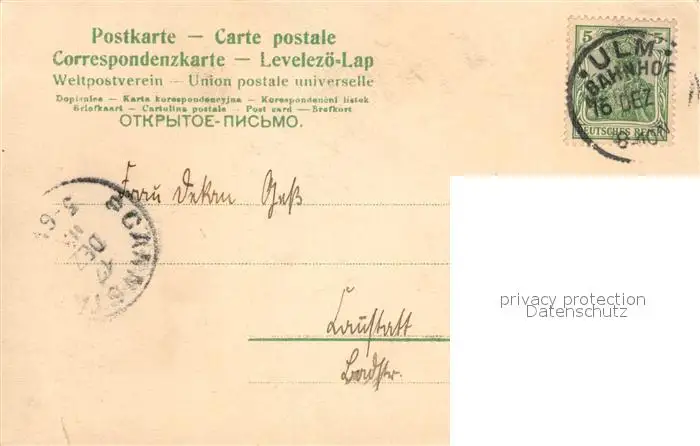 Postkarte — Carte postale
Correspondenzkarte — Levelezö-Lap
Weltpostverein — Union postale universelle
Dopisnice — Karta korespondencyjna — Korespondenční listek
Briefkaart — Cartolina postale — Post card — Brefkort
ОТКРЫТОЕ-ПИСЬМО.
5 5
ULM
BAHNHOF
16 DEZ
DEUTSCHES REICH
Frau Dekan
CANNST
DEZ
5-6
privacy protection
Datenschutz
Cannstatt
Badstr.